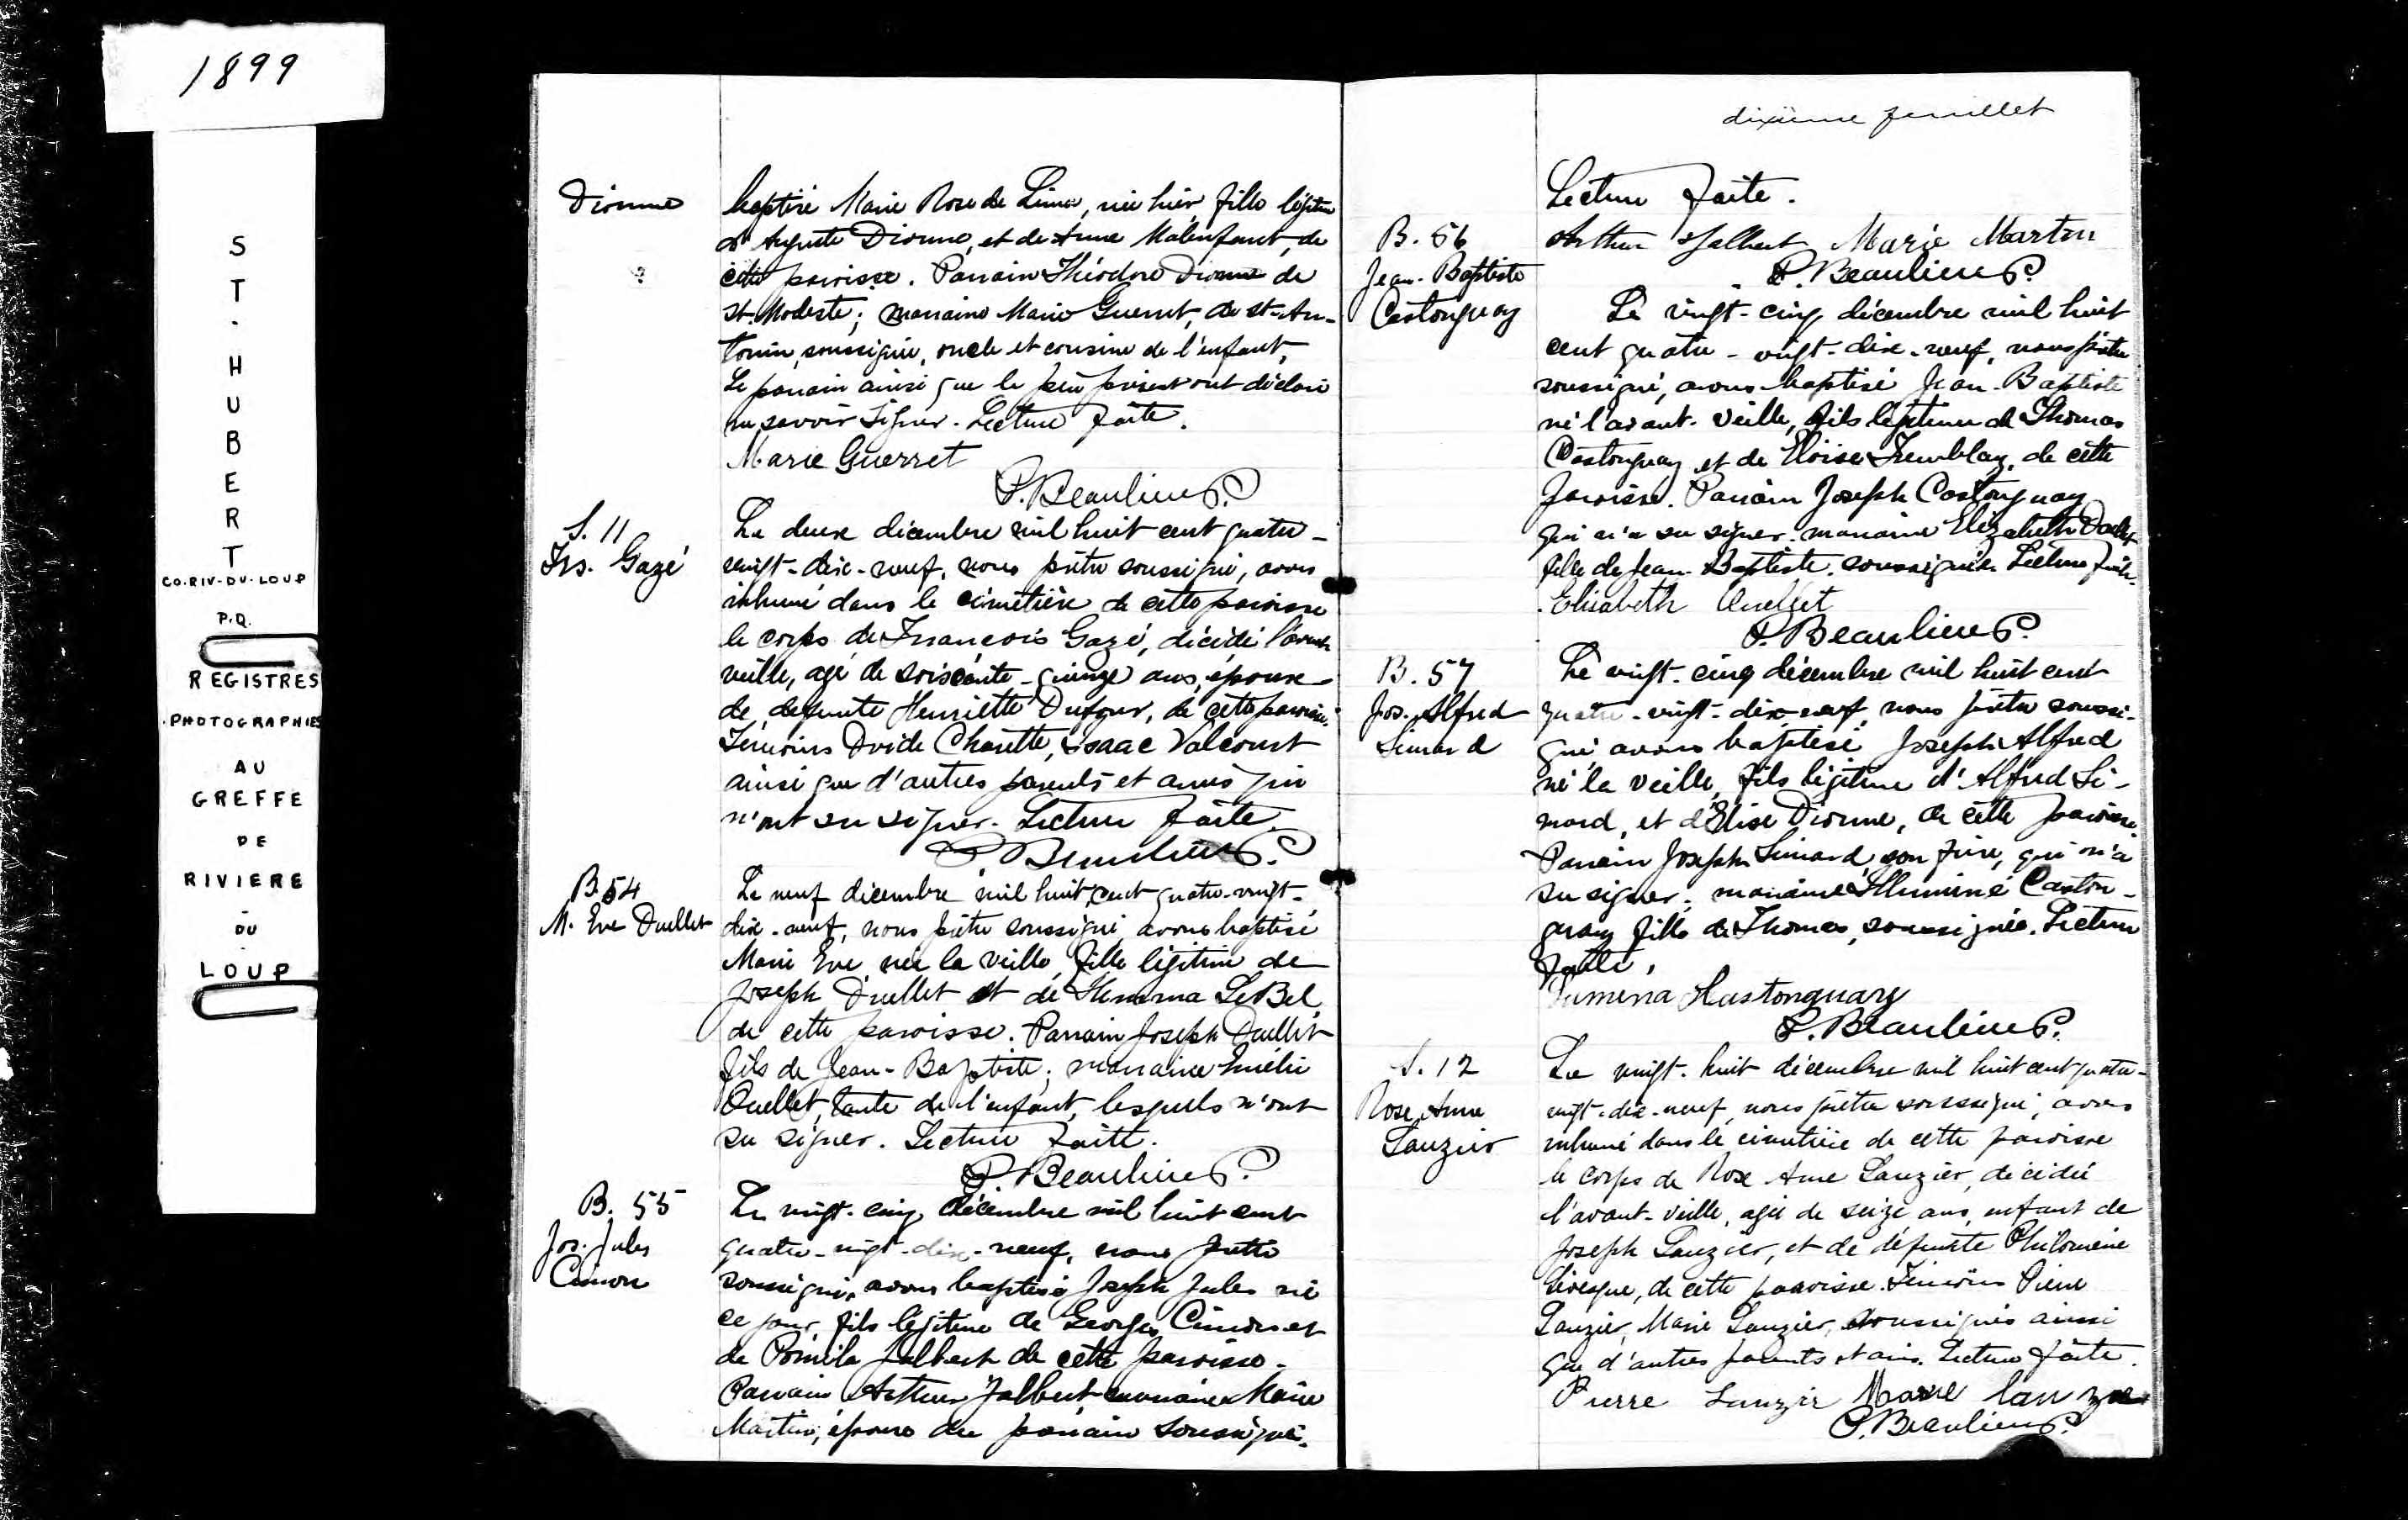 1899
ST. HUBERT
CO. RIV-DU-LOUP
P.Q.
REGISTRES
PHOTOGRAPHIES
AU
GREFFE
DE
RIVIERE
-
DU
-
LOUP
Dionne
baptisé Marie Rose de Lima, née hier, fille légitime
d'Auguste Dionne, et de Anne Malenfant, de
cette paroisse. Parrain Théodore Dionne de
St. Modeste; marraine Marie Guerret, de St-An-
tonin, soussignée, oncle et cousine de l'enfant,
Le parrain ainsi que le père présent ont déclaré
ne savoir signer. Lecture faite.
Marie Guerret
P. Beaulieu P.
S. 11
Frs. Gazé
Le deux décembre mil huit cent quatre-
vingt-dix-neuf, nous prêtre soussigné, avons
inhumé dans le cimetière de cette paroisse
le corps de François Gazé, décédé l'avant
veille, agé de soixante-quinze ans, époux
de defunte Henriette Dufour, de cette paroisse.
Témoins David Charette, Isaac Valcourt
ainsi que d'autres parents et amis qui
n'ont su signer. Lecture faite.
P. Beaulieu P.
B. 54
M. Eve Ouellet
Le neuf décembre mil huit cent quatre-vingt-
dix-neuf, nous prêtre soussigné avons baptisé
Marie Eve, née la veille, fille légitime de
Joseph Ouellet et de Hemma LeBel
de cette paroisse. Parrain Joseph Ouellet
fils de Jean-Baptiste; marraine Emélie
Ouellet, tante de l'enfant, lesquels n'ont
su signer. Lecture faite.
P. Beaulieu P.
B. 55
Jos. Jules
Cimon
Le vingt-cinq décembre mil huit cent
quatre-vingt-dix-neuf, nous prêtre
soussigné, avons baptisé Joseph Jules né
ce jour, fils légitime de Georges Cimon et
de Jalbert de cette paroisse.
Parrain Arthur Jalbert marraine Marie
Martin, épouse du parrain soussignés.
dixième feuillet
Lecture faite.
Arthur Jalbert Marie Martin
P. Beaulieu P.
B. 56
Jean-Baptiste
Castonguay
Le vingt-cinq décembre mil huit
cent quatre-vingt-dix-neuf, nous prêtre
soussigné, avons baptisé Jean-Baptiste
né l'avant-veille, fils légitime de Thomas
Castonguay et de Eloise Tremblay, de cette
paroisse. Parrain Joseph Castonguay
qui n'a su signer. marraine Elizabeth Ouellet
fille de Jean-Baptiste, soussignée. Lecture faite.
Elisabeth Ouellet
P. Beaulieu P.
B. 57
Jos. Alfred
Simard
Le vingt-cinq décembre mil huit cent
quatre-vingt-dix-neuf, nous prêtre soussi-
gné avons baptisé Joseph Alfred
né la veille, fils légitime d'Alfred Si-
mard, et d'Elise Dionne, de cette paroisse.
Parrain Joseph Simard, son frère, qui n'a
su signer; marraine Illuminé Caston-
guay fille de Thomas, soussignée. Lecture
faite.
Lumena Kastonguay
P. Beaulieu P.
S. 12
Rose Anne
Lauzier
Le vingt-huit décembre mil huit cent quatre-
vingt-dix-neuf, nous prêtre soussigné, avons
inhumé dans le cimetière de cette paroisse
le corps de Rose Anne Lauzier, décédée
l'avant-veille, agée de seize ans, enfant de
Joseph Lauzier, et de défunte Philomène
Lévesque, de cette paroisse. Témoins Pierre
Lauzier, Marie Lauzier, soussignés ainsi
que d'autres parents et amis. Lecture faite.
Pierre Lauzir Marie lauzie
P. Beaulieu P.